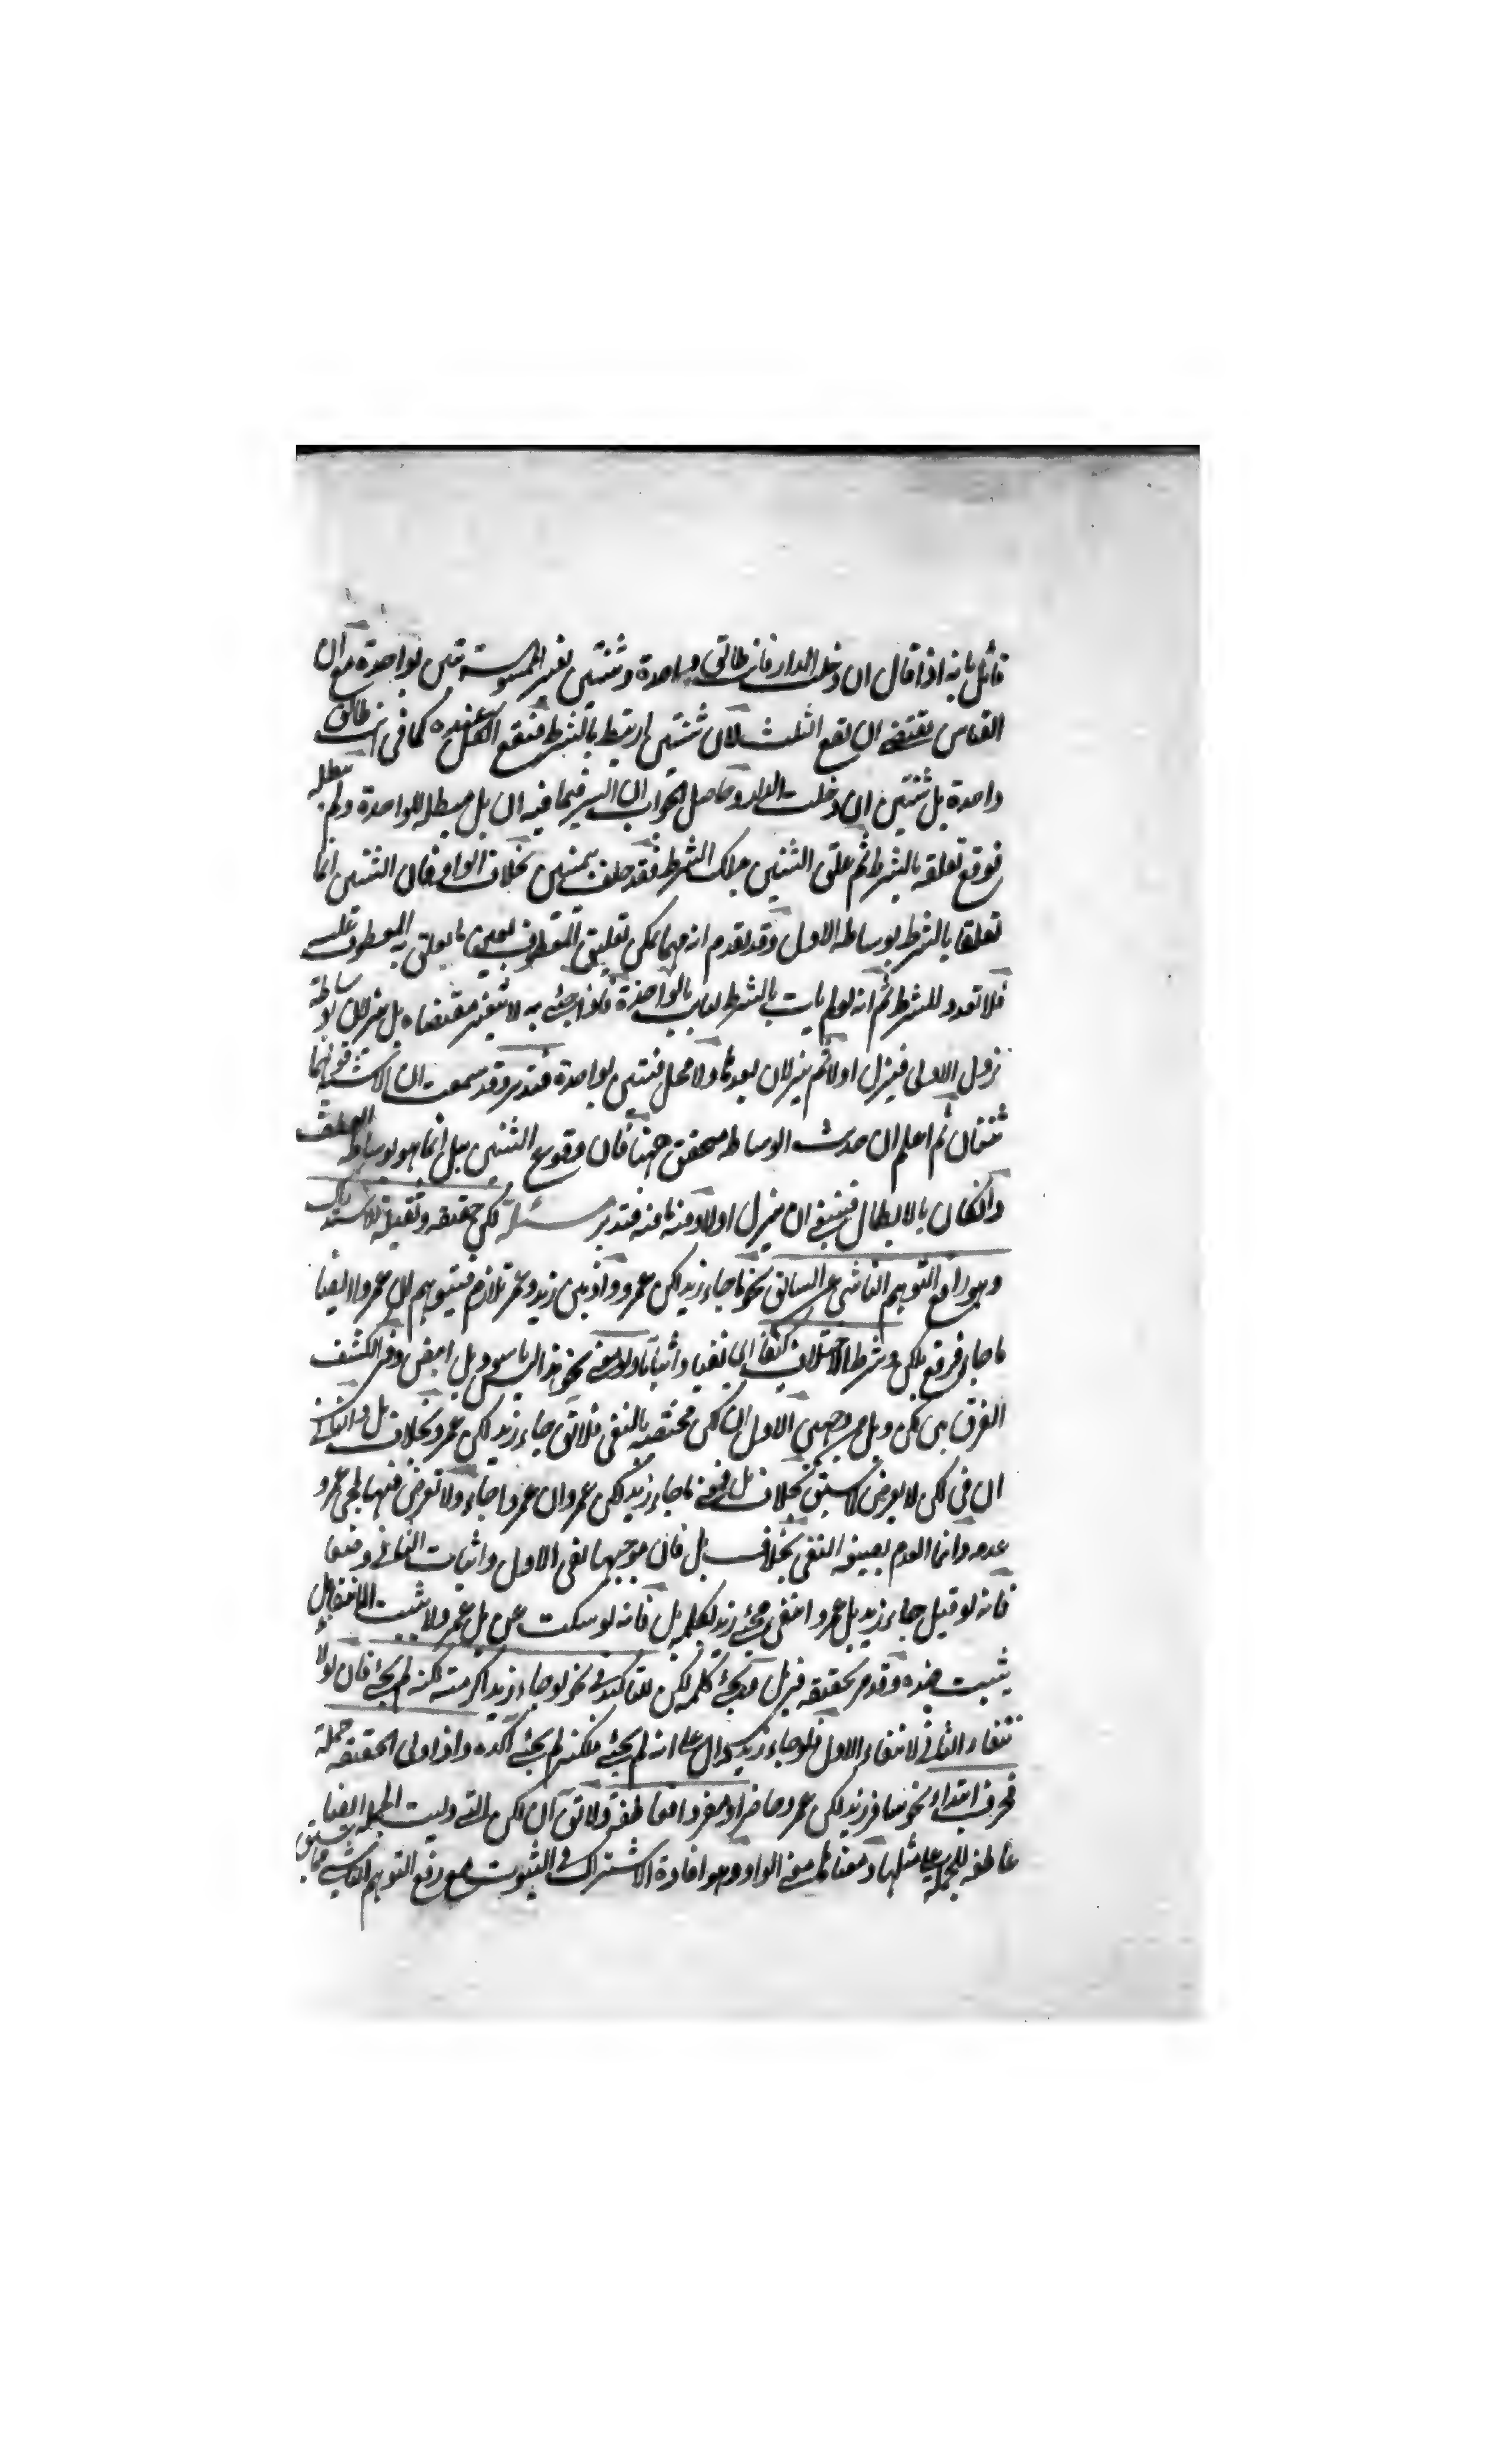 قائل بانه اذا قال ان دخلت الدار فانت طالق واحدة وثنتين لغير الممسوسة تبين بواحدة مع ان
القياس يقتضي ان يقع الثلث لان ثنتين ارتبط بالشرط فيقع الكل عنده كما في انت طالق
واحدة بل ثنتين ان دخلت الدار وحاصل الجواب ان السر فيما فيه ان بل مبطلة للواحدة ولم يبطله
فوقع تعلقه بالشرط ثم علق الثنتين بذلك الشرط فقد حلف بيمينين بخلاف الواو فان الثنتين انما
تعلقا بالشرط بوساطة الاول وقد تقدم انه مهما يمكن تعليق المعطوف بعين ما تعلق به المعطوف عليه
فلا تعدد للشرط ثم انه لو لم يات بالشرط بانت بالواحدة فاذا جئ به لا يتغير مقتضاه بل ينزلان بوساطة
نزول الاولى فينزل اولا ثم ينزلان بعدها ولا محل فتبين بواحدة فتدبر وقد سمعت ان الاشبه قولهما
فتفان ثم اعلم ان حديث الوساطة متحقق ههنا فان وقوع الثنتين ببل انما هو بوساطة العطف
وان كان بالابطال فينبغي ان ينزل اولا وثانيا منه فتدبر مسئلة لكن حقيقة وثقيلة للاستدراك
وهو رفع التوهم الناشي عن السابق نحو ما جاء زيد لكن عمرو واذ بين زيد وعمرو تلازم فيتوهم ان عمروا ايضا
ما جاء فرفع بلكن وشرط الاختلاف كيفا اي نفيا واثباتا ولو معنى نحو هذا ليس باسود بل ابيض وفي الكشف
الفرق بين لكن وبل من وجهين الاول ان لكن مختصة بالنفي فلا تق جاء زيد لكن عمرو بخلاف بل والثاني
ان في لكن لا يعرض لما سبق بخلاف بل فمعنى ما جاء زيد لكن عمرو ان عمروا جاء ولا تعرض فيها لمجئ عمرو
عدمه وانما العدم بصيغة النفي بخلاف بل فان موجبها نفي الاول واثبات الثاني وضعا
فانه لو قيل جاء زيد بل عمرو انتفى مجئ زيد لكلمة بل فانه لو سكت عن بل عمرو لا يثبت الانتفاء بل
يثبت ضده وقد مر تحقيقه في بل وقد يجئ كلمة لكن للتاكيد في نحو لو جاء زيد اكرمته لكنه لم يجئ فان لولا
نتفاء الثاني لانتفاء الاول فلو جاء زيد دال على انه لم يجئ فلكنه لم يجئ اكده واذا ولي الخفيفة جملة
فحرف ابتداء نحو سافر زيد لكن عمرو حاضر او مفردا فعاطفة ولا تق ان لكن التي وليت الجملة ايضا
عاطفة للجملة على مثلها ومعناها معنى الواو وهو افادة الاشتراك في الثبوت مع رفع التوهم الناشي مما سبق